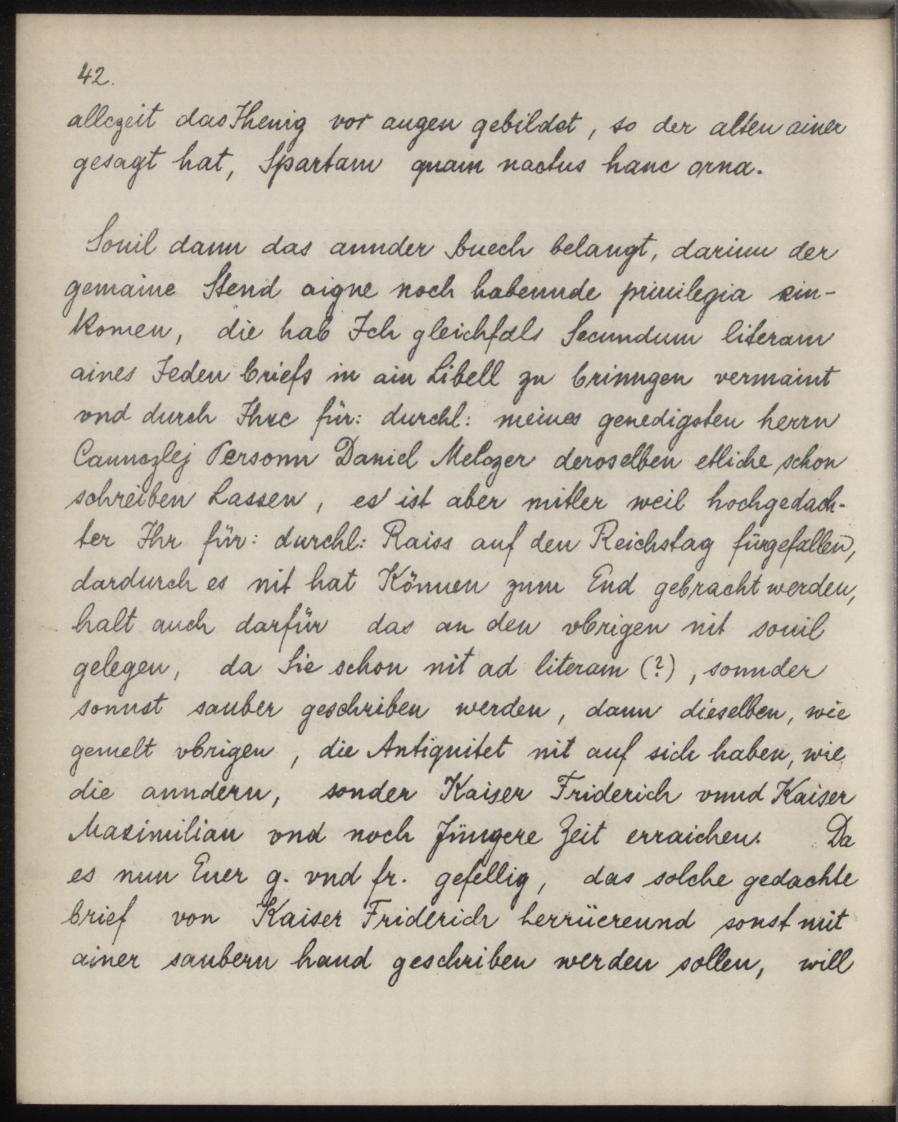 42.
allezeit das Ihenig vor augen gebildet, so der alten ainer
gesagt hat, Spartam quam nactus hanc orna.
Souil dann das annder buech belangt, darinn der
gemaine Stend aigne noch habennde priuilegia ein-
komen, die hab Ich gleichfals Secundum literam
aines Jeden briefs in ain Libell zu bringen vermaint
vnd durch Ihre für: durchl: meines genedigsten herrn
Cannczlej Personn Daniel Melczer deroselben etliche schon
schreiben Lassen, es ist aber mitler weil hochgedach-
ter Ihr für: durchl: Raiss auf den Reichstag fürgefallen,
dardurch es nit hat Können zum End gebracht werden,
halt auch darfür das an den vbrigen nit souil
gelegen, da Sie schon nit ad literam (?), sonnder
sonnst sauber geschriben werden, dann dieselben, wie
gemelt vbrigen, die Antiquitet nit auf sich haben, wie
die anndern, sonder Kaiser Friderich vnnd Kaiser
Maximilian vnd noch Jüngere Zeit erraichen. Da
es nun Euer g. vnd fr. gefellig, das solche gedachte
brief von Kaiser Friderich herrüerennd sonst mit
ainer saubern hand geschriben werden sollen, will